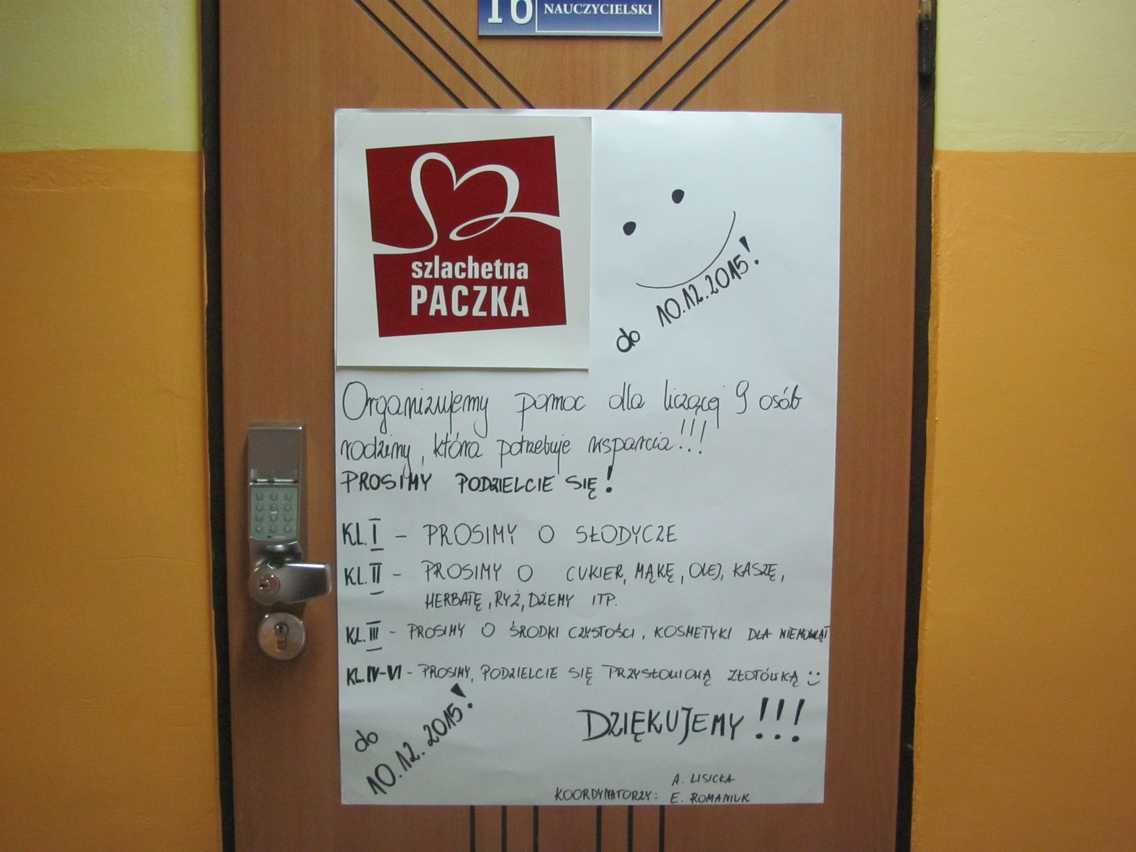 16 NAUCZYCIELSKI
szlachetna
PACZKA
do 10.12.2015!
Organizujemy pomoc dla liczącej 9 osób
rodziny, która potrzebuje wsparcia!!!
PROSIMY PODZIELCIE SIĘ!
KL.I - PROSIMY O SŁODYCZE
KL.II - PROSIMY O CUKIER, MĄKĘ, OLEJ, KASZĘ,
HERBATĘ, RYŻ, DŻEMY ITP.
KL.III - PROSIMY O ŚRODKI CZYSTOŚCI, KOSMETYKI DLA NIEMOWLĄT
KL.IV-VI - PROSIMY, PODZIELCIE SIĘ PRZYSŁOWIOWĄ ZŁOTÓWKĄ
do 10.12.2015!
DZIĘKUJEMY!!!
A. LISICKA
KOORDYNATORZY: E. ROMANIUK